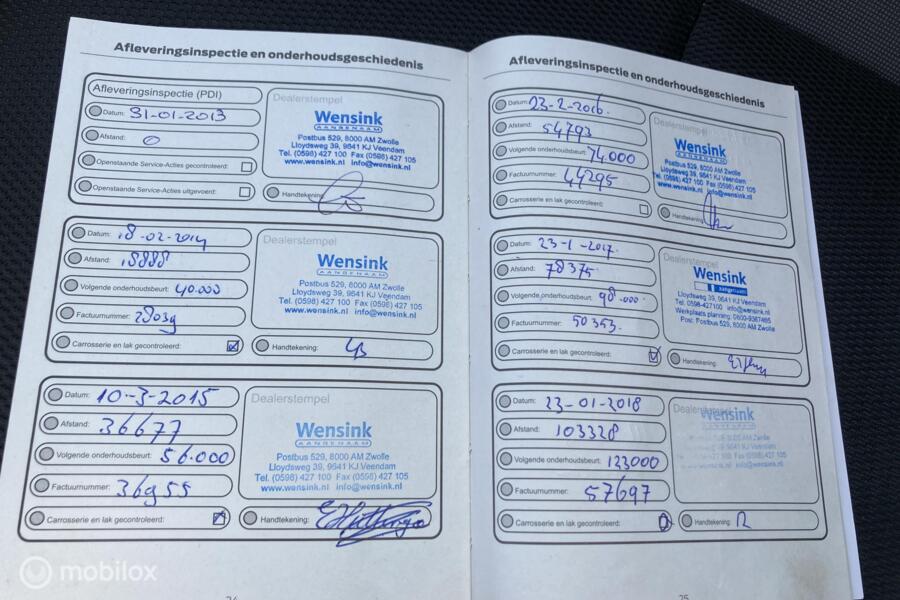 Afleveringsinspectie en onderhoudsgeschiedenis
Afleveringsinspectie (PDI)
Datum: 31-01-2013
Afstand: 0
Openstaande Service-Acties gecontroleerd:
Openstaande Service-Acties uitgevoerd:
Dealerstempel
Wensink
AANGENAAM
Postbus 529, 8000 AM Zwolle
Lloydsweg 39, 9641 KJ Veendam
Tel. (0598) 427 100 Fax (0598) 427 105
www.wensink.nl info@wensink.nl
Handtekening:
Datum: 18-02-2014
Afstand: 18888
Volgende onderhoudsbeurt: 40.000
Factuurnummer: 28039
Carrosserie en lak gecontroleerd:
Dealerstempel
Wensink
AANGENAAM
Postbus 529, 8000 AM Zwolle
Lloydsweg 39, 9641 KJ Veendam
Tel. (0598) 427 100 Fax (0598) 427 105
www.wensink.nl info@wensink.nl
Handtekening:
Datum: 10-3-2015
Afstand: 36677
Volgende onderhoudsbeurt: 56.000
Factuurnummer: 36955
Carrosserie en lak gecontroleerd:
Dealerstempel
Wensink
AANGENAAM
Postbus 529, 8000 AM Zwolle
Lloydsweg 39, 9641 KJ Veendam
Tel. (0598) 427 100 Fax (0598) 427 105
www.wensink.nl info@wensink.nl
Handtekening:
Afleveringsinspectie en onderhoudsgeschiedenis
Datum: 23-2-2016.
Afstand: 54793
Volgende onderhoudsbeurt: 74.000
Factuurnummer: 44295
Carrosserie en lak gecontroleerd:
Dealerstempel
Wensink
AANGENAAM
Postbus 529, 8000 AM Zwolle
Lloydsweg 39, 9641 KJ Veendam
Tel. (0598) 427 100 Fax (0598) 427 105
www.wensink.nl info@wensink.nl
Handtekening:
Datum: 23-1-2017.
Afstand: 78375
Volgende onderhoudsbeurt: 98.000.
Factuurnummer: 50353.
Carrosserie en lak gecontroleerd:
Dealerstempel
Wensink
aangenaam
Lloydsweg 39, 9641 KJ Veendam
Tel. 0598-427100 www.wensink.nl
Werkplaats planning: 0800-9367465
Post: Postbus 529, 8000 AM Zwolle
Handtekening:
Datum: 23-01-2018
Afstand: 103328
Volgende onderhoudsbeurt: 123000
Factuurnummer: 57697
Carrosserie en lak gecontroleerd:
Dealerstempel
Wensink
Handtekening:
25
mobilox